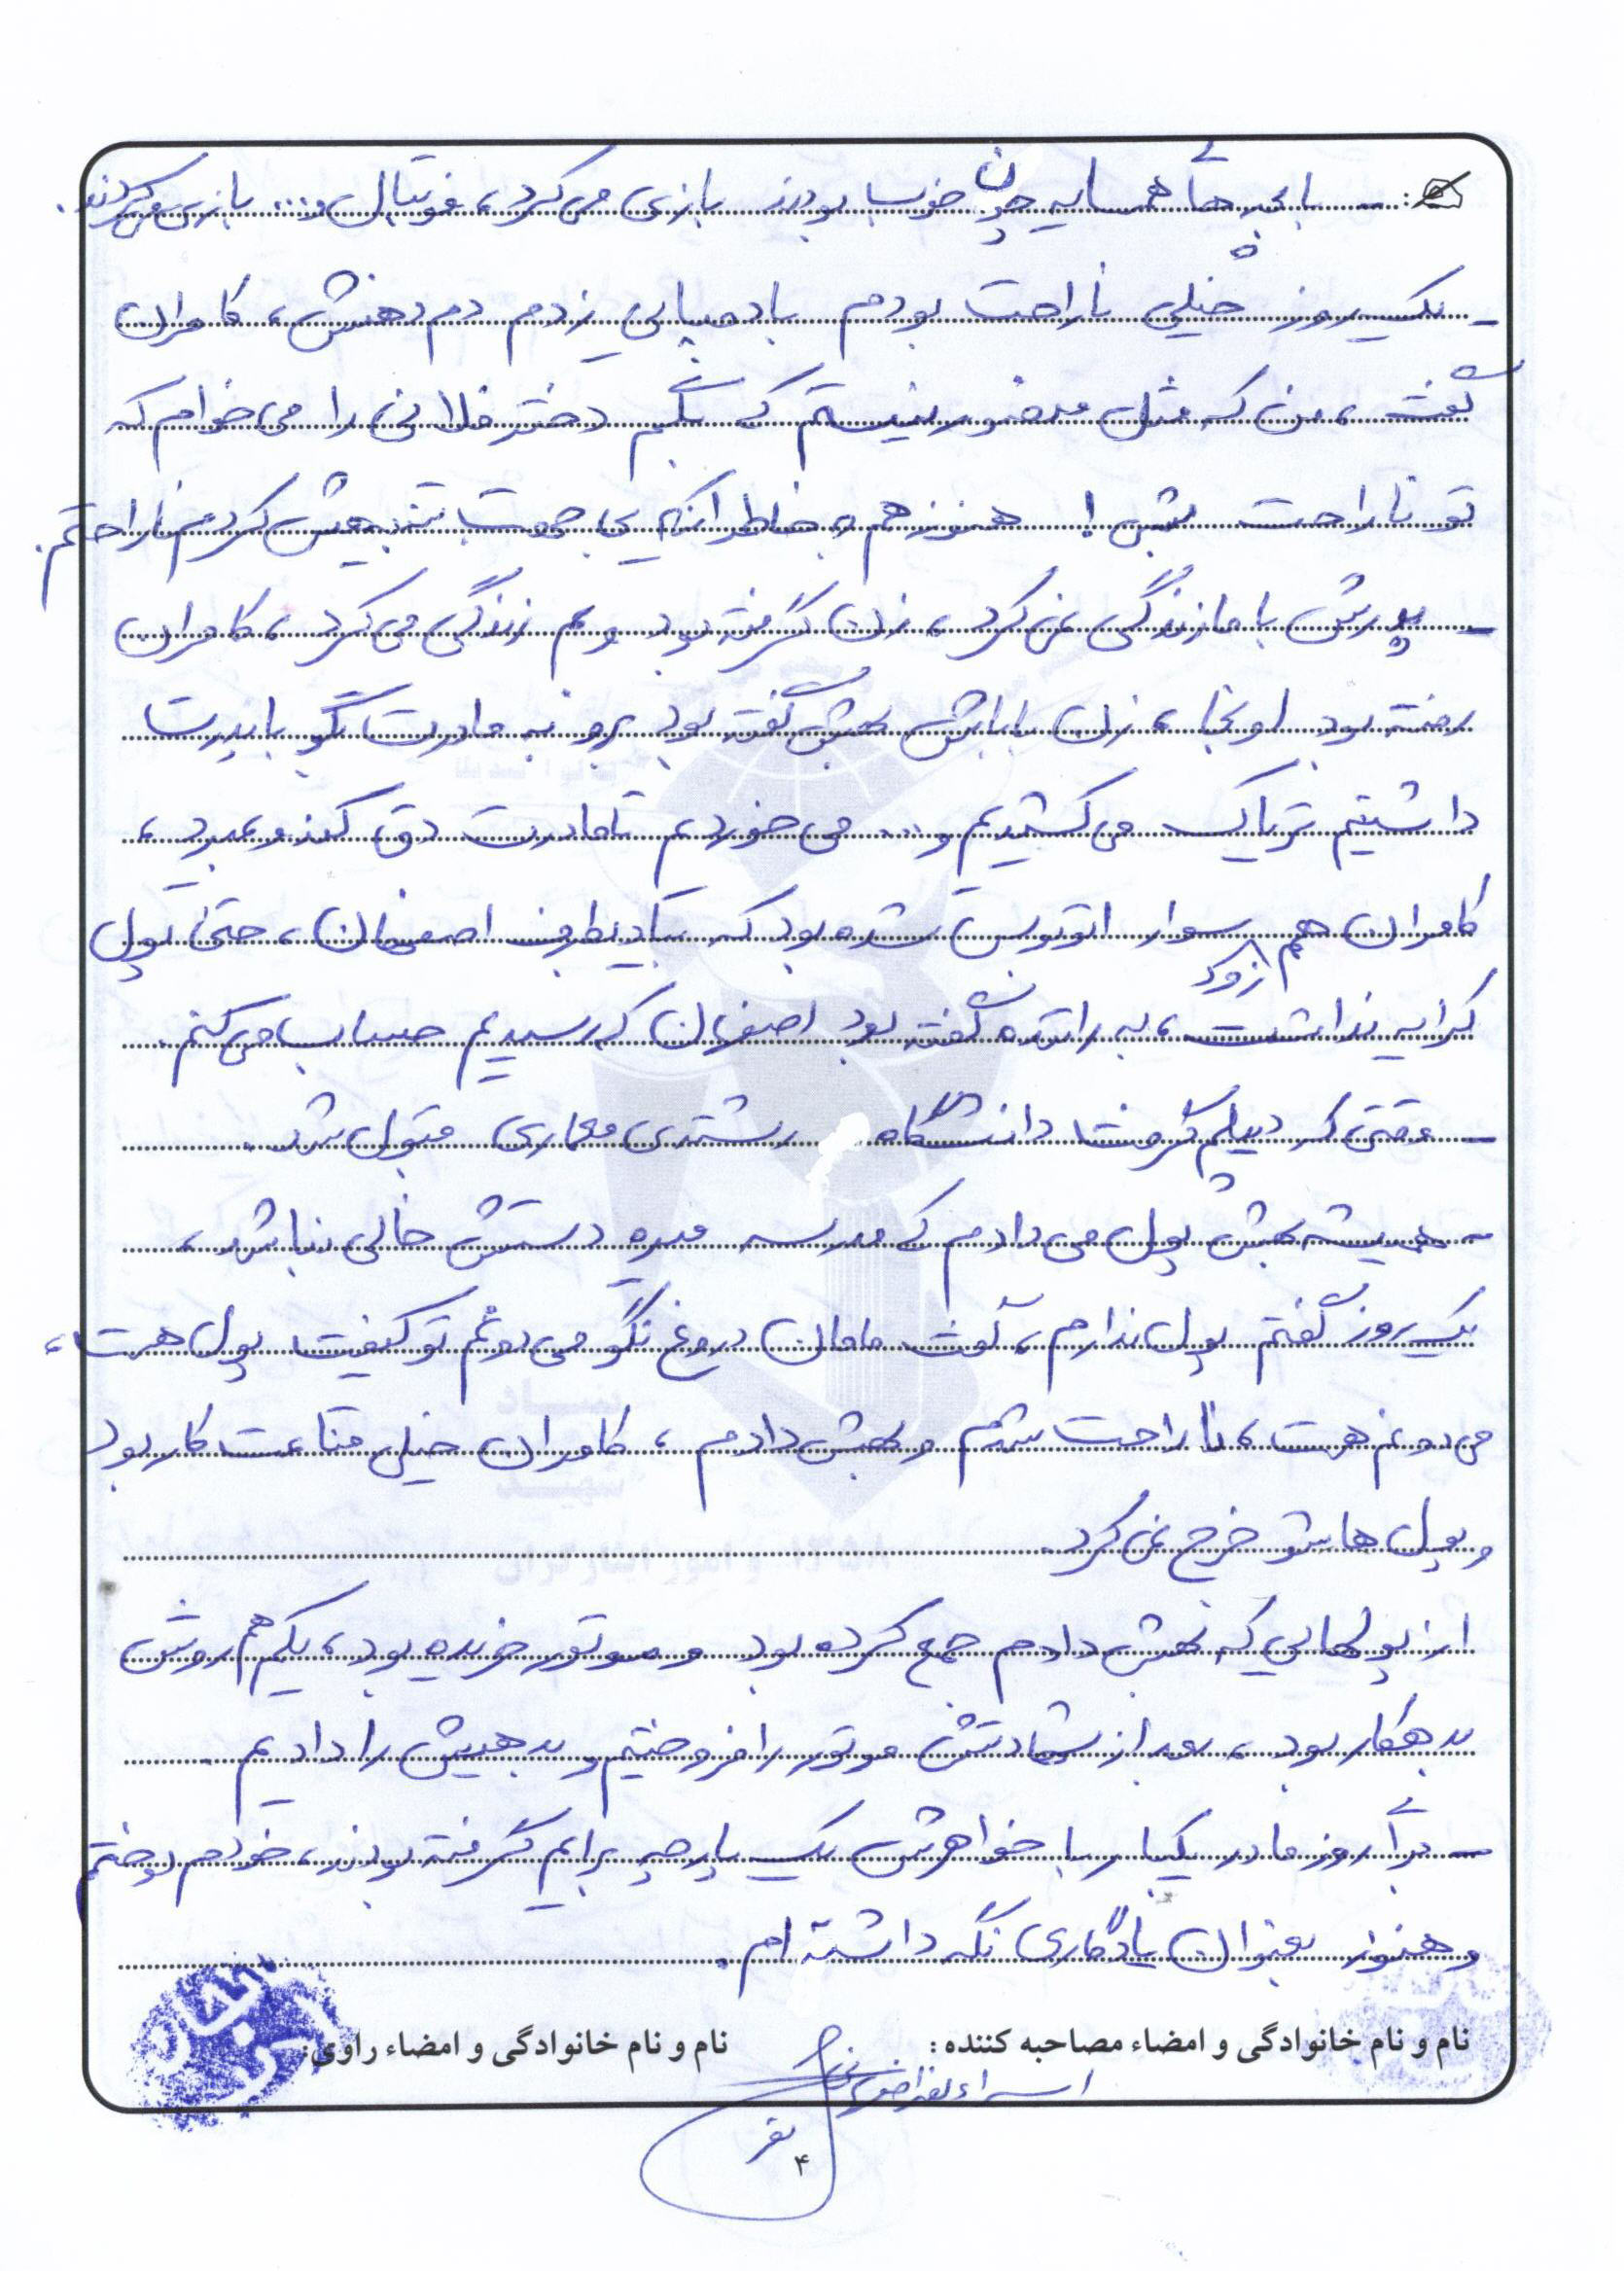 - با بچه های همسایه چون خوب بودند بازی می کرد، فوتبال و... بازی می کردند.
- یک روز خیلی ناراحت بودم با دمپایی زدم دم دهنش، کامران
گفت، من که مثل منصور نیستم که بگم دختر فلانی را می خوام که
تو ناراحت بشی! هنوز هم به خاطر اینکه بی جهت تنبیهش کردم ناراحتم.
- پدرش با ما زندگی نمی کرد، زن گرفته بود و قم زندگی می کرد، کامران
رفته بود اونجا، زن باباش بهش گفته بود برو به مادرت بگو با پدرت
داشتیم تریاک می کشیدیم و ... می خوردیم تا مادرت دق کند و بمیرد،
کامران هم سوار اتوبوس شده بود که بیاید بطرف اصفهان، حتی پول
کرایه نداشت، به راننده گفته بود اصفهان که رسیدیم حساب می کنم.
- وقتی که دیپلم گرفت دانشگاه رشته ی معماری قبول شد.
- همیشه بهش پول می دادم که مدرسه میره دستش خالی نباشد،
یک روز گفتم پول ندارم، گفت مامان دروغ نگو می دونم تو کیفت پول هست،
می دونم هست، ناراحت شدم و بهش دادم، کامران خیلی قناعت کار بود
و پول هاشو خرج نمی کرد.
از پولهایی که بهش دادم جمع کرده بود و موتور خریده بود، یکم هم روش
بدهکار بود، بعد از شهادتش موتور را فروختیم و بدهیش را دادیم.
- برای روز مادر یکبار با خواهرش یک پارچه برایم گرفته بودند، خودم دوختم
و هنوز بعنوان یادگاری نگه داشته ام.
نام و نام خانوادگی و امضاء مصاحبه کننده: نام و نام خانوادگی و امضاء راوی:
۴